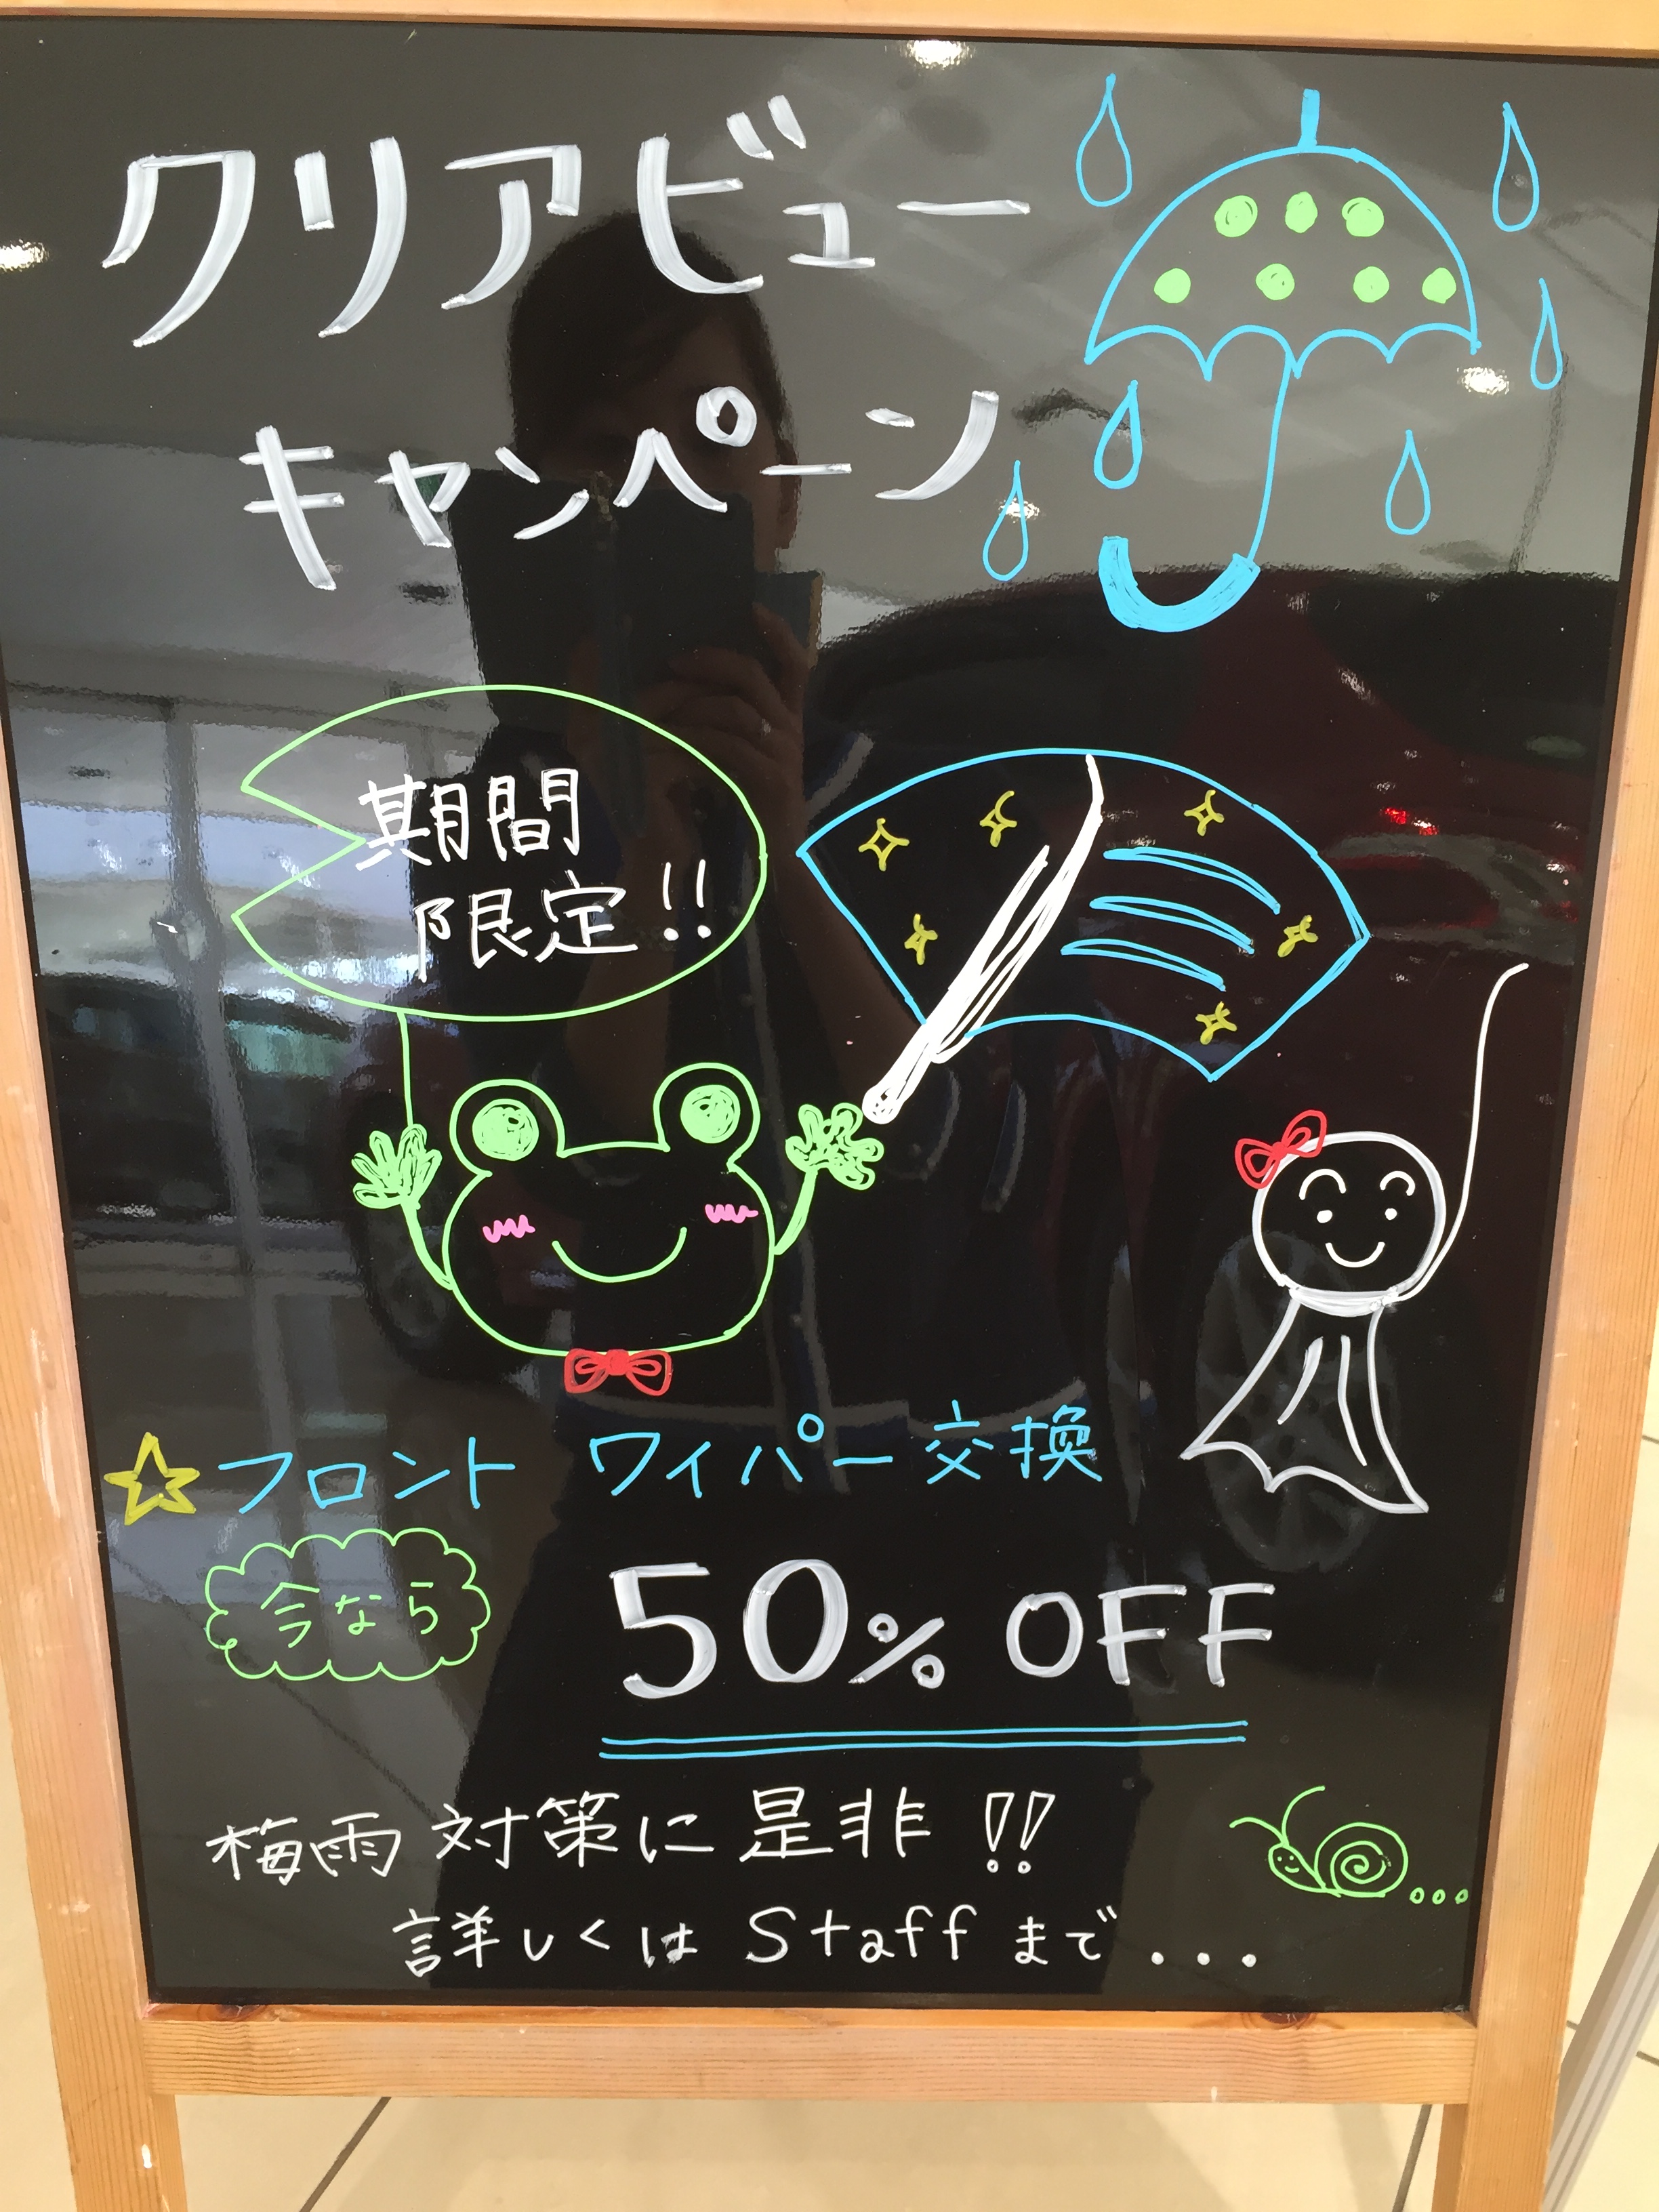 クリアビュー
キャンペーン
期間
限定!!
☆フロント ワイパー交換
今なら
50% OFF
梅雨対策に是非!!
詳しくは Staff まで...